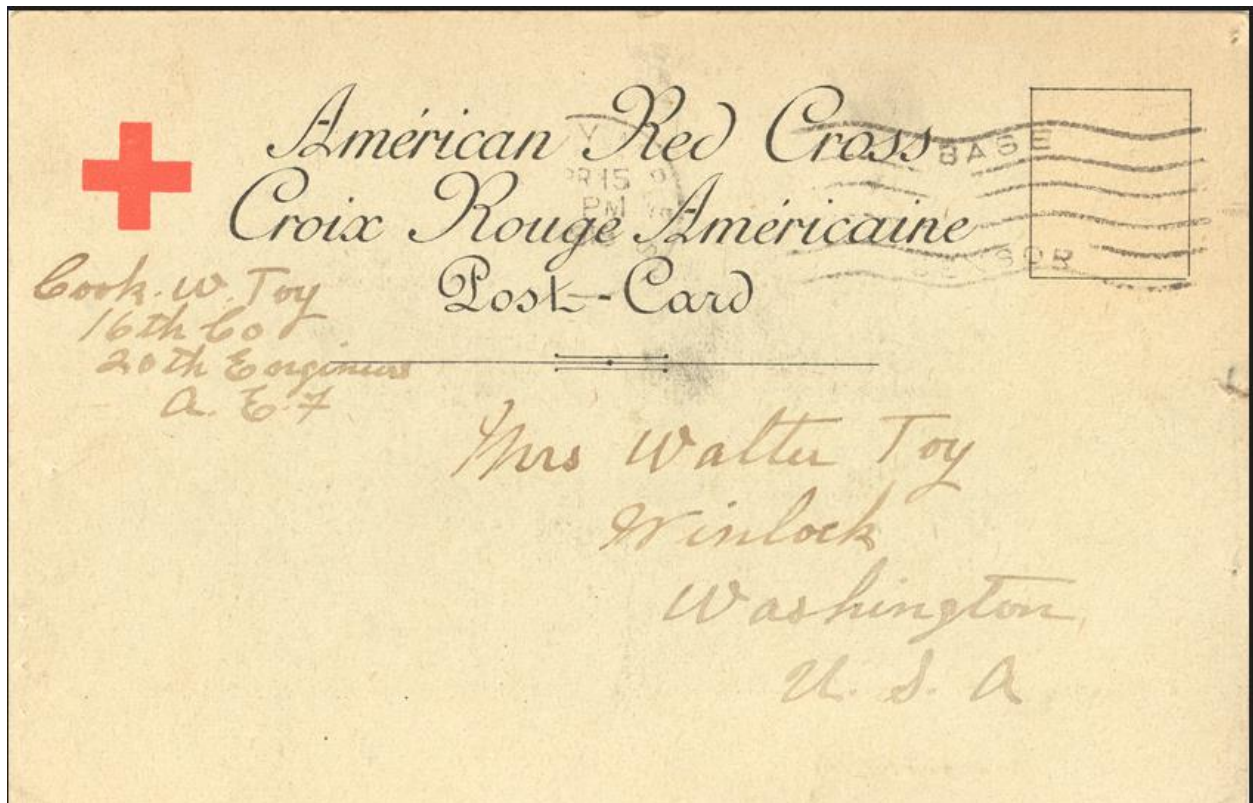 Américan Red Cross
Croix Rouge Américaine
Post-Card
BASE
PR 15
PM
Cook. W. Toy
16th Co
20th Engineers
A. E. F
Mrs Walter Toy
Winlock
Washington
U. S. A